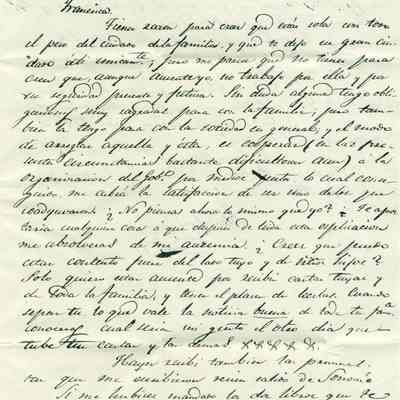 Francisca.
Tienes razon para creer qué vas sola con todo
el peso del cuidado de la familia, y qué te dejo un gran cui-
dado a ti unicamente, pero me parece qué no tienes para
creer que, aunque ausente yo, no trabajo por ella y por
su seguridad presente y futura. Sin duda alguna tengo obli-
gaciones muy sagradas para con la familia, pero tam-
bien la tengo para con la sociedad en general, y el modo
de arreglar aquella y esta, es cooperar (en las pre-
sentes circunstancias bastante dificultosas aun) á la
organizacion del Gobº. por medios justo lo cual consi-
guiendo me cabrá la satisfaccion de ser uno de los que
coadyuvaron. ¿No piensas ahora lo mismo que yo? ¿Te apos-
taria cualquier cosa á que despues de toda esta esplicacion
me absolveras de mi ausencia. ¿Crees que puedo
estar contento fuera del lado tuyo y de mis hijos?
Solo quiero estar ausente por recibir cartas tuyas y
de toda la familia, y tener el placer de leerlas. Cuando
sepan tu lo que vale la noticia buena de todo te
conoceras cual seria mi gusto el otro dia que
tube tu cartas y las demas. XXXXX.
Hayer recibi tambien las primeras
que me escribieron recien salido de Sonora
Si me hubieses mandado los dos libros que te